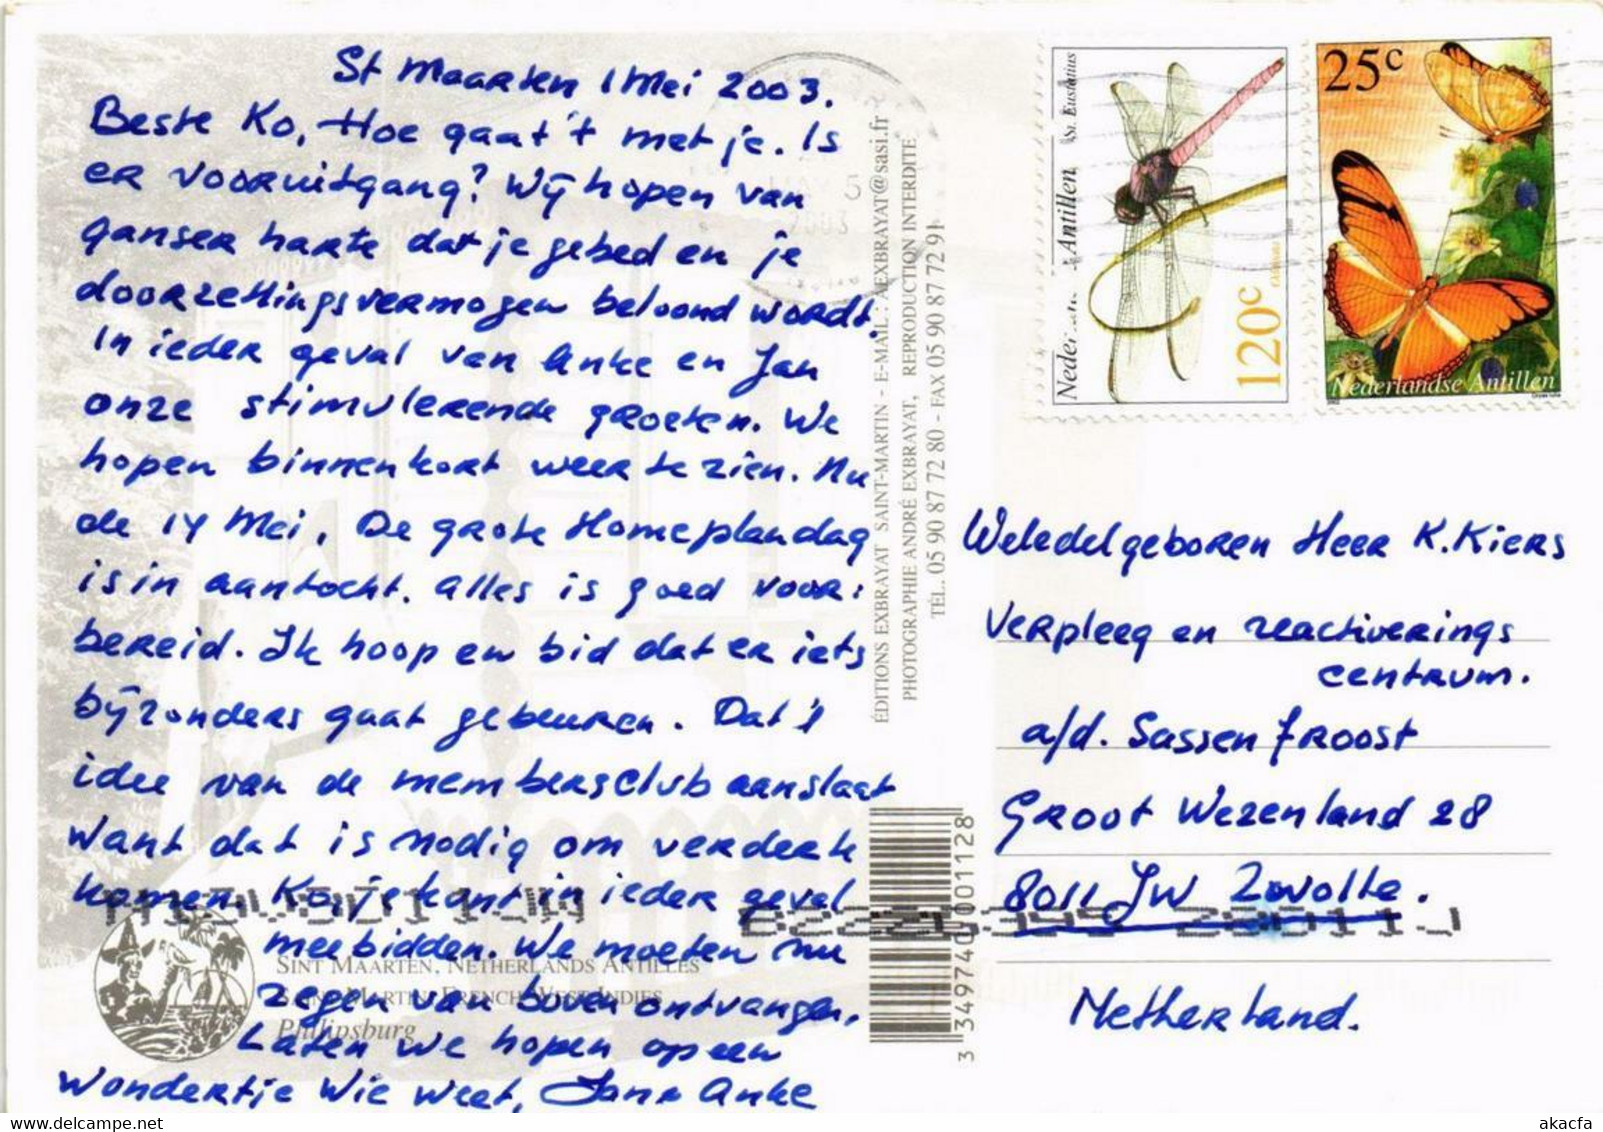 St Maarten 1 Mei 2003.
Beste Ko, Hoe gaat 't met je. Is
er vooruitgang? Wij hopen van
ganser harte dat je gebed en je
doorzettingsvermogen beloond wordt.
In ieder geval van Anke en Jan
onze stimulerende groeten. We
hopen binnenkort weer te zien. Nu
de 14 Mei. De grote Homeplandag
is in aantocht. Alles is goed voor:
bereid. Ik hoop en bid dat er iets
bijzonders gaat gebeuren. Dat 't
idee van de membersclub aanslaat
want dat is nodig om verder te
komen. Ko, je kant in ieder geval
meebidden. We moeten nu
zegen van boven ontvangen.
Laten we hopen op een
wondertje Wie weet, Jan & Anke
SINT MAARTEN, NETHERLANDS ANTILLES
SAINT MARTIN, FRENCH WEST INDIES
Philipsburg
ÉDITIONS EXBRAYAT SAINT-MARTIN - E-MAIL : AEXBRAYAT@sasi.fr
PHOTOGRAPHIE ANDRÉ EXBRAYAT, REPRODUCTION INTERDITE
TÉL. 05 90 87 72 80 - FAX 05 90 87 72 91
3 349740 001128
5
2003
Antillen
St. Eustatius
120c
25c
Nederlandse Antillen
Weledelgeboren Heer K. Kiers
Verpleeg en reactiverings
centrum.
a/d. Sassenpoort
Groot Wezenland 28
8011 JW Zwolle.
Netherland.
akacfa